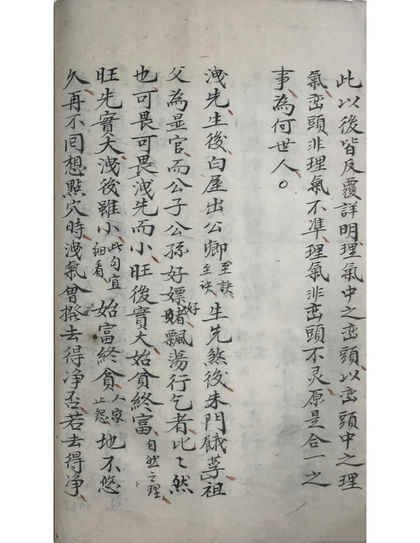 此以後皆反覆詳明理氣中之巒頭以巒頭中之理
氣巒頭非理氣不準理氣非巒頭不灵原是合一之
事為何世人。
洩先生後白屋出公卿至訣至诀生先煞後朱門餓莩祖
父為显官而公子公孫好嫖好賭飄湯行乞者比〻然
也可畏可畏洩先而小旺後實大始貧終富自然之理
旺先實大洩後雖小此句宜細看始富終貧人家止怨地不悠
久再不囘想點穴時洩氣曾撥去得净否若去得净